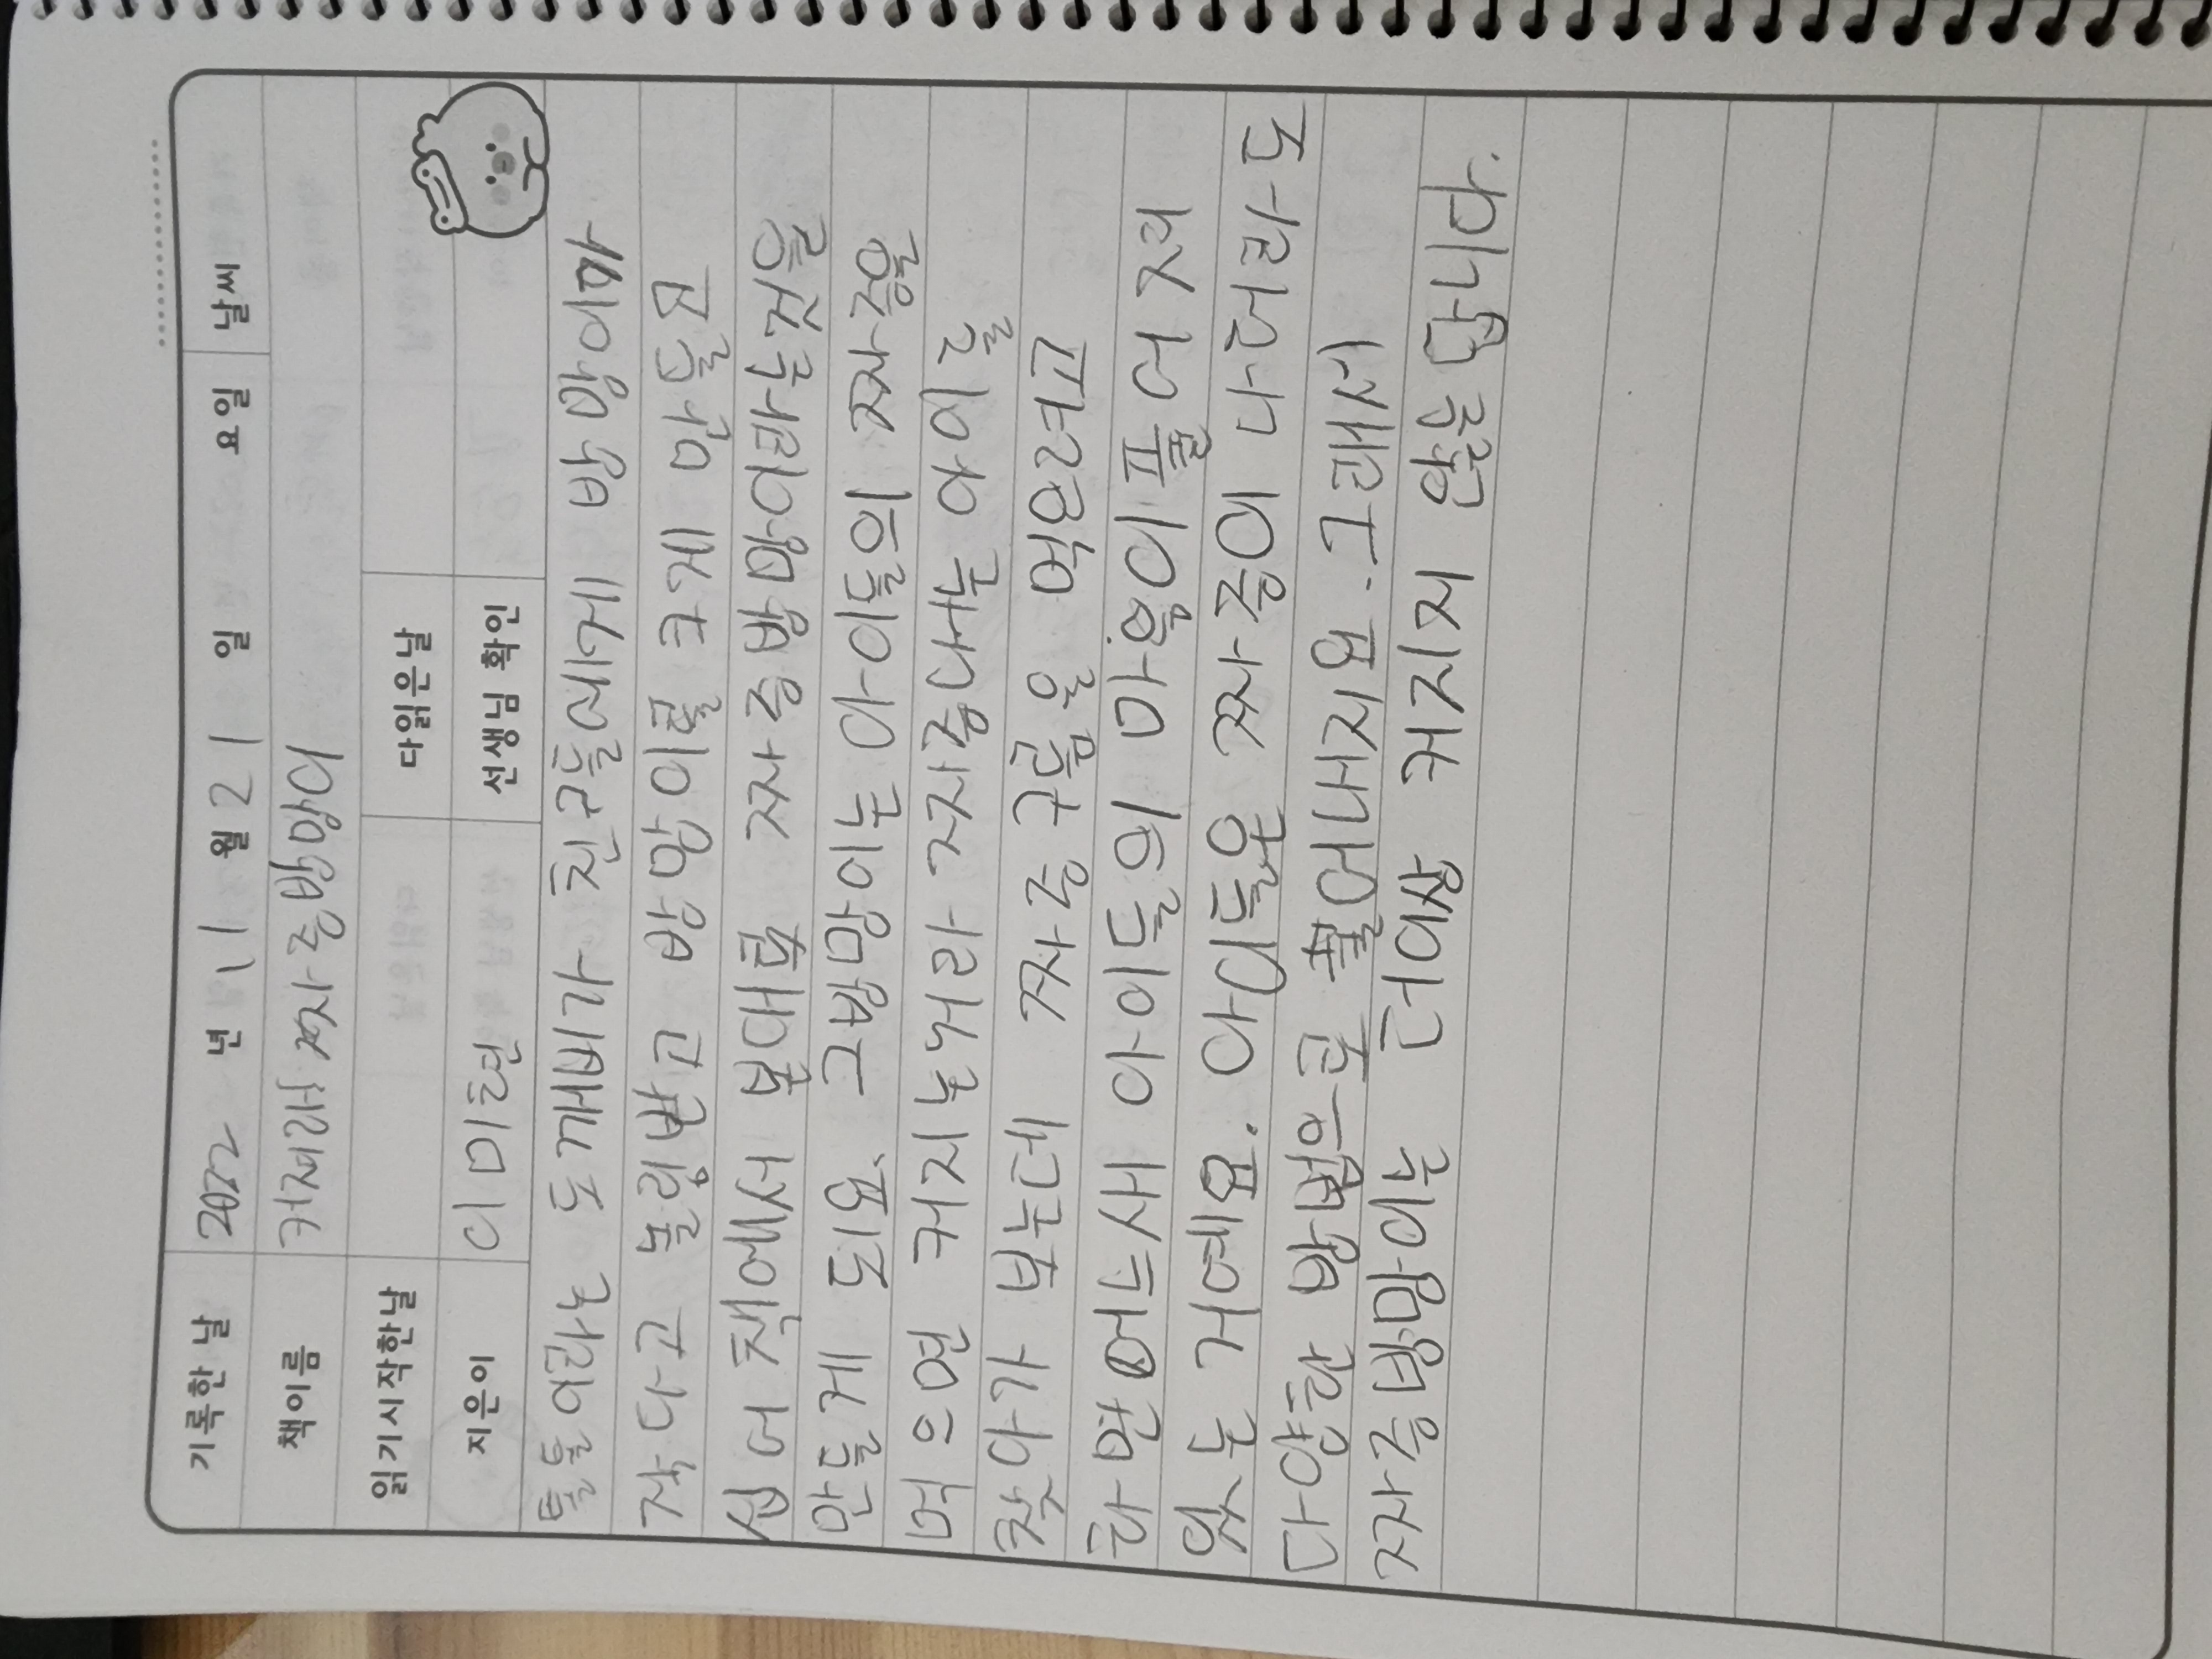 기록한 날 2022 년 11 월 21 일 요일 날씨
책이름 커져라! 짜증방망이
읽기시작한날 다읽은날
지은이 이미현 선생님 확인
툴툴이라는 도깨비가 친구들에게 방망이가
작다고 놀림받고 방망이를 크게 만들고
싶어 책에서 본대로 짜증방망이라는것을
만들게 되요. 그방망이는 아이들의 짜증을
먹으면 커지는거라 짜증내는 아이들
찾아가 보는데 짜증구름을 먹으려고
하면어느새 아이들의 마음이 풀어져
있는 거예요. 아이들은 짜증이 나더라도
다양한 방법으로 풀어내지요. 그래서
짜증방망이는 더이상 커지지 않는답니다.